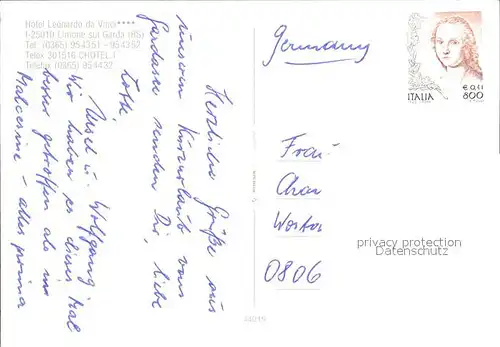 Hotel Leonardo da Vinci ****
I-25010 Limone sul Garda (BS)
Tel. (0365) 954351 - 954352
Telex 301516 CHOTEL I
Telefax (0365) 954432
Herzliche Grüße aus
unserem Kurzurlaub vom
Gardasee senden Dir, liebe
Lotte
Ursel u. Wolfgang
Wir haben es dieses Mal
besser getroffen als in
Malcesine – alles prima
Germany
ITALIA
€ 0,41
800
Frau
Char
Westou
0806
privacy protection
Datenschutz